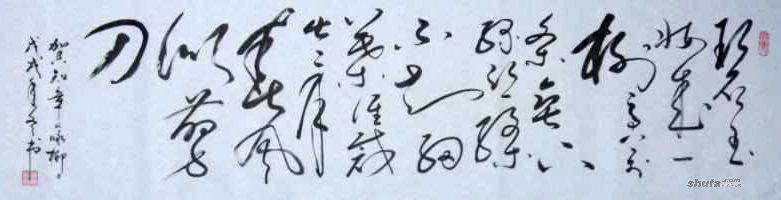 碧玉
妝成一
樹高万
条垂下
绿丝绦
不知细
葉谁裁
出二月
春风
似剪
刀
贺知章咏柳
戊戌年冬书